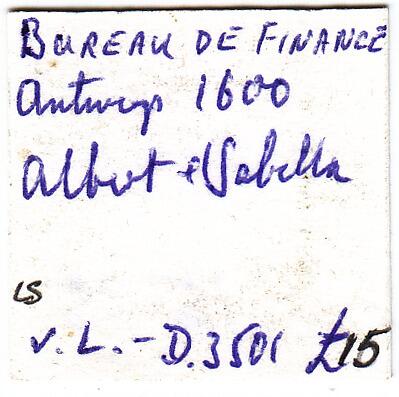 BUREAU DE FINANCE
Antwerp 1600
Albert & Isabella
LS
v.L. - D.3501 £15